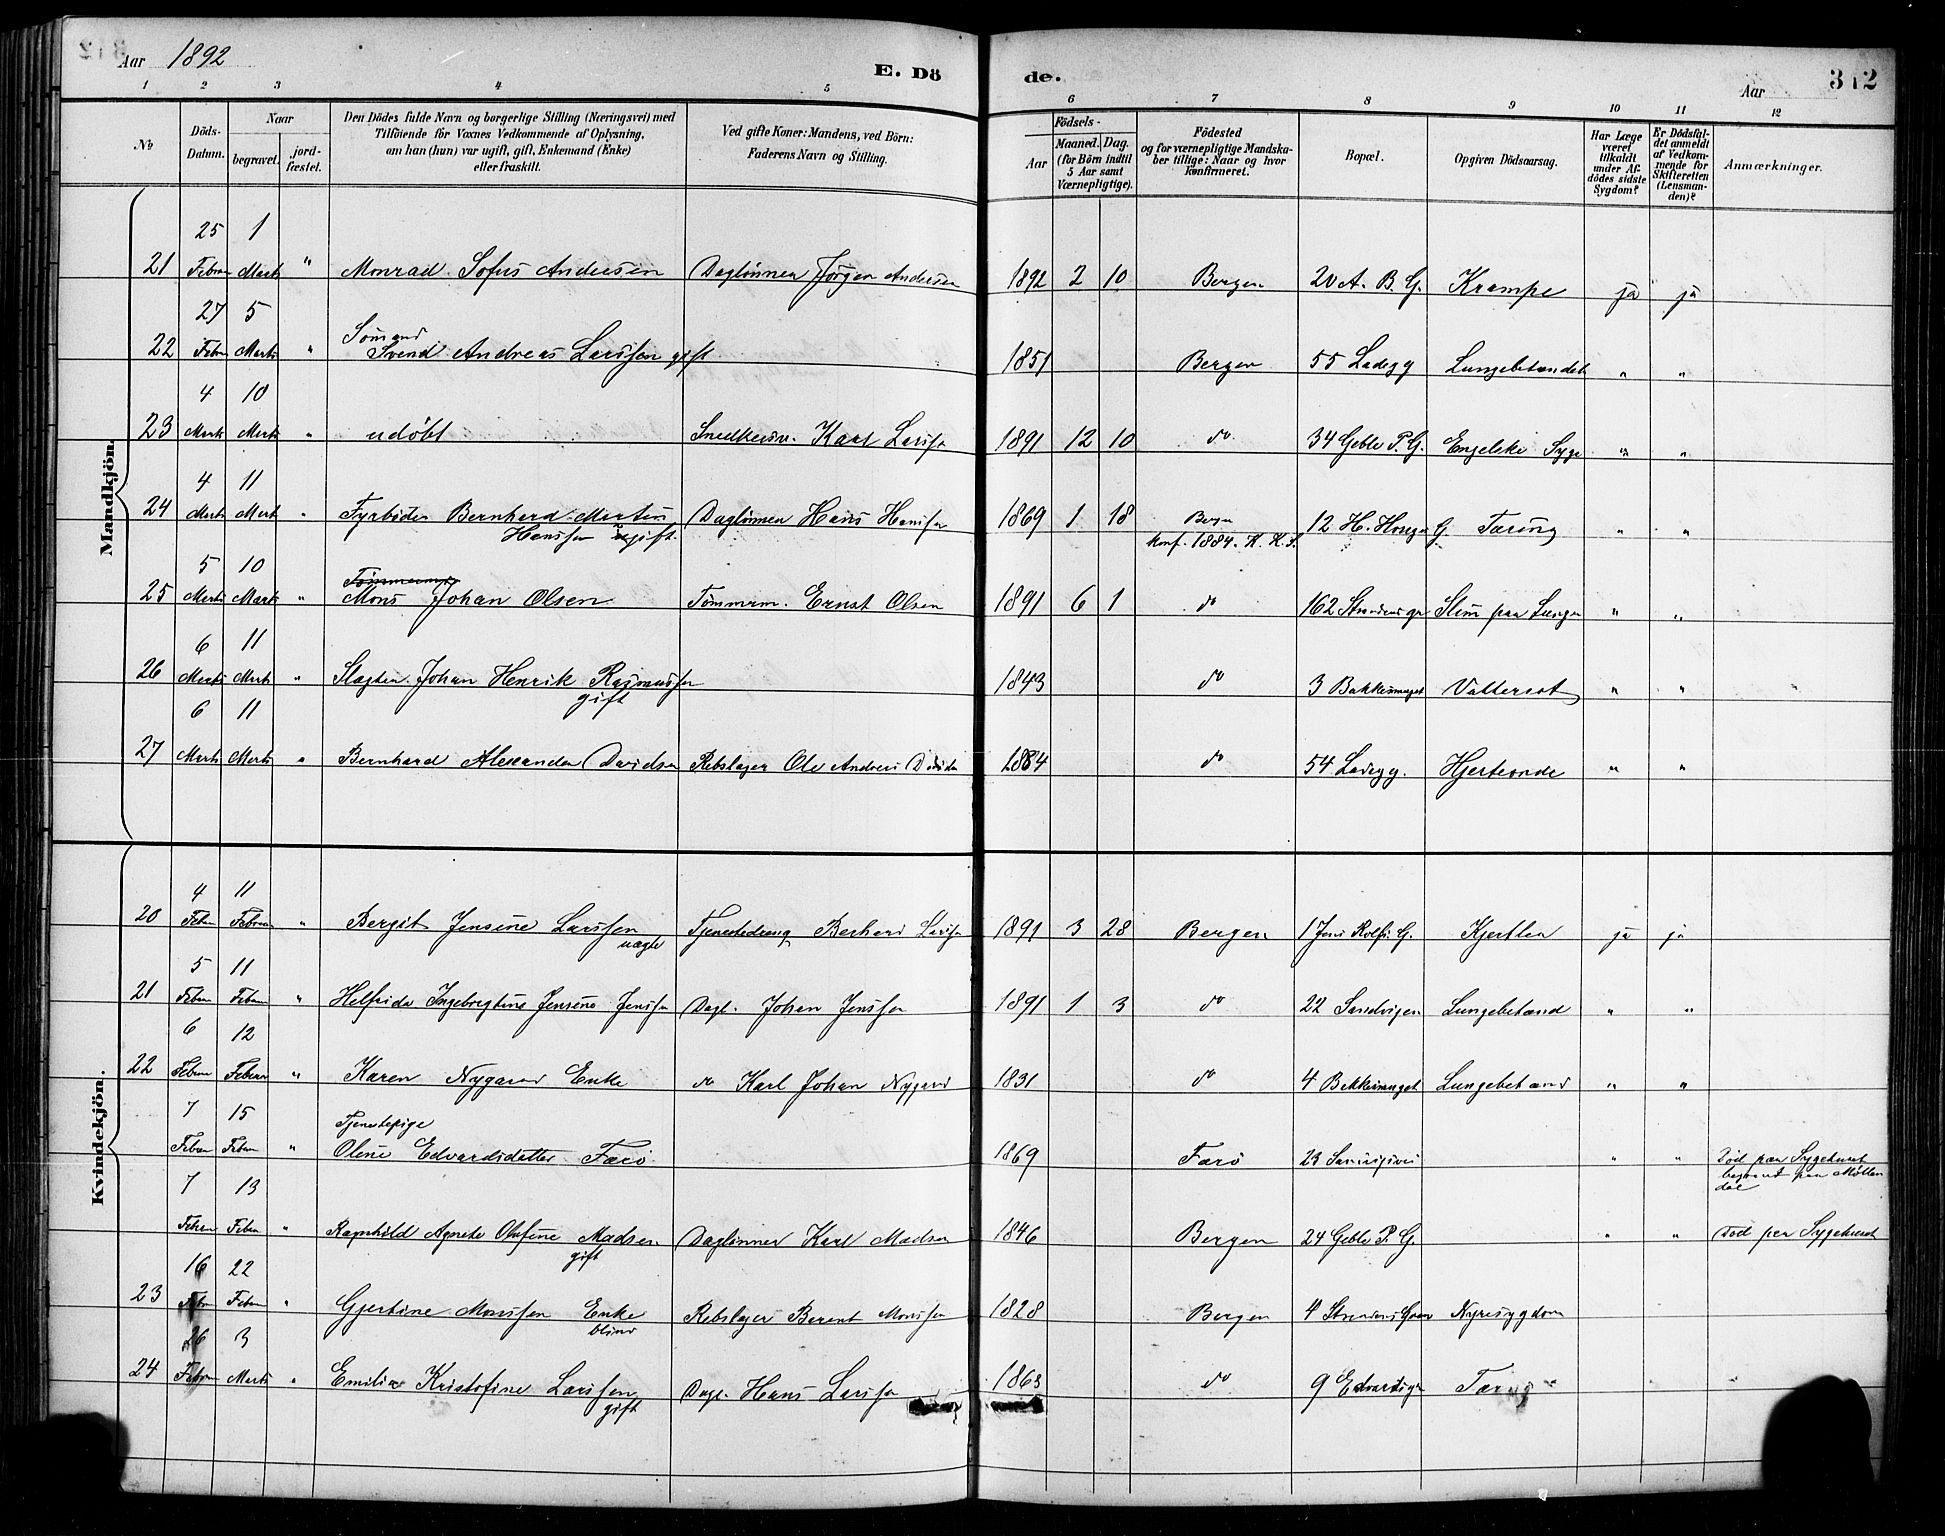 Aar 1892 E. Dö
1 2 3 4 5
No
Döds-
Datum.
Naar
begravet.
jord-
fæstet.
Den Dödes fulde Navn og borgerlige Stilling (Næringsvei) med
Tilföiende for Voxnes Vedkommende af Oplysning,
om han (hun) var ugift, gift, Enkemand (Enke)
eller fraskilt.
Ved gifte Koner: Mandens, ved Börn:
Faderens Navn og Stilling.
de. Aar 312
6 7 8 9 10 11 12
Födsels-
Aar
Maaned. Dag.
(for Börn indtil
5 Aar samt
Værnepligtige).
Födested
og for værnepligtige Mandska-
ber tillige: Naar og hvor
konfirmeret.
Bopæl.
Opgiven Dödsaarsag.
Har Læge
været
tilkaldt
under Af-
dödes sidste
Sygdom?
Er Dödsfal-
det anmeldt
af Vedkom-
mende for
Skifteretten
(Lensman-
den)?
Anmærkninger.
Mandkjön.
25 1
21 Febru Marts " Monrad Sofus Andersen Daglönner Jörgen Andersen 1892 2 10 Bergen 20 A. B. G. Krampe ja ja
27 5
Sömand
22 Febr Marts " Svend Andreas Larssen gift 1851 Bergen 55 Ladegg Lungebetændet " "
4 10
23 Marts Marts " udöbt Snedkersv. Karl Larssen 1891 12 10 do 34 Geble P. G. Engelske Syge " "
4 11
24 Marts Marts " Fyrböder Bernhard Martin Daglönner Hans Hanssen 1869 1 18 Bergen 12 H. G. Tæring " "
Hanssen ugift konf. 1884. K. K.
5 10
Tömmermd
25 Marts Marts " Mons Johan Olsen Tömmerm. Ernst Olsen 1891 6 1 do 162 Strandens gr Slim paa Lunger " "
6 11
26 Marts Marts " Slagter Johan Henrik Rasmussen 1843 do 3 Bakkesmuget Vattersot " " "
gift
6 11
27 Marts Marts " Bernhard Alexander Davidsen Rebslager Ole Andreas Davidsen 1884 do 54 Ladegg. Hjerteonde " "
Kvindekjön.
4 11
20 Febru Februar " Bergit Jensine Larssen Tjenestedreng Berhard Larssen 1891 3 28 Bergen 1 Jens Rolfs G. Kjertler ja ja
uægte
5 11
21 Febru Febru " Helfrida Ingebregtine Jensine Jenssen Dagl. Johan Jenssen 1891 1 3 do 22 Sandvigen Lungebetænd " "
6 12
22 Februar Februar " Karen Nygaard Enke do Karl Johan Nygaard 1831 do 4 Bakkesmuget Lungebetænd " "
7 15
Tjenestepige
Febru Febru " Oline Edvardsdatter Færö 1869 Færö 23 Sandvigsvei " " död paa Sygehuset
begravet paa Möllen
dal
7 13
Febru Febru " Ragnhild Agnete Olufine Madsen Daglönner Karl Madsen 1846 Bergen 24 Geble P. G. " " död paa Sygehuset
gift
16 22
23 Febru Febru " Gjertine Monssen Enke Rebslager Berent Monssen 1828 Bergen 4 Nyresygdom
blind
26 3
24 Febru Marts " Emilia Kristofine Larssen Dagl. Hans Larssen 1863 do 9 Edvardsgr Tæring
gift